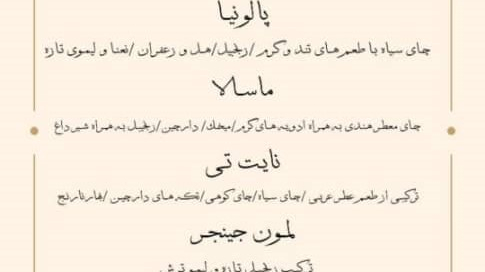 پالونیا
چای سیاه با طعم‌های تند و گرم /زنجبیل/هل و زعفران /نعنا و لیموی تازه
ماسالا
چای معطر هندی به همراه ادویه های گرم/میخک/ دارچین/زنجبیل به همراه شیر داغ
نایت تی
ترکیبی از طعم عطر عربی /چای سیاه/چای کوهی/تکه های دارچین /بهار نارنج
لمون جینجر
ترکیب زنجبیل تازه و لیمو ترش